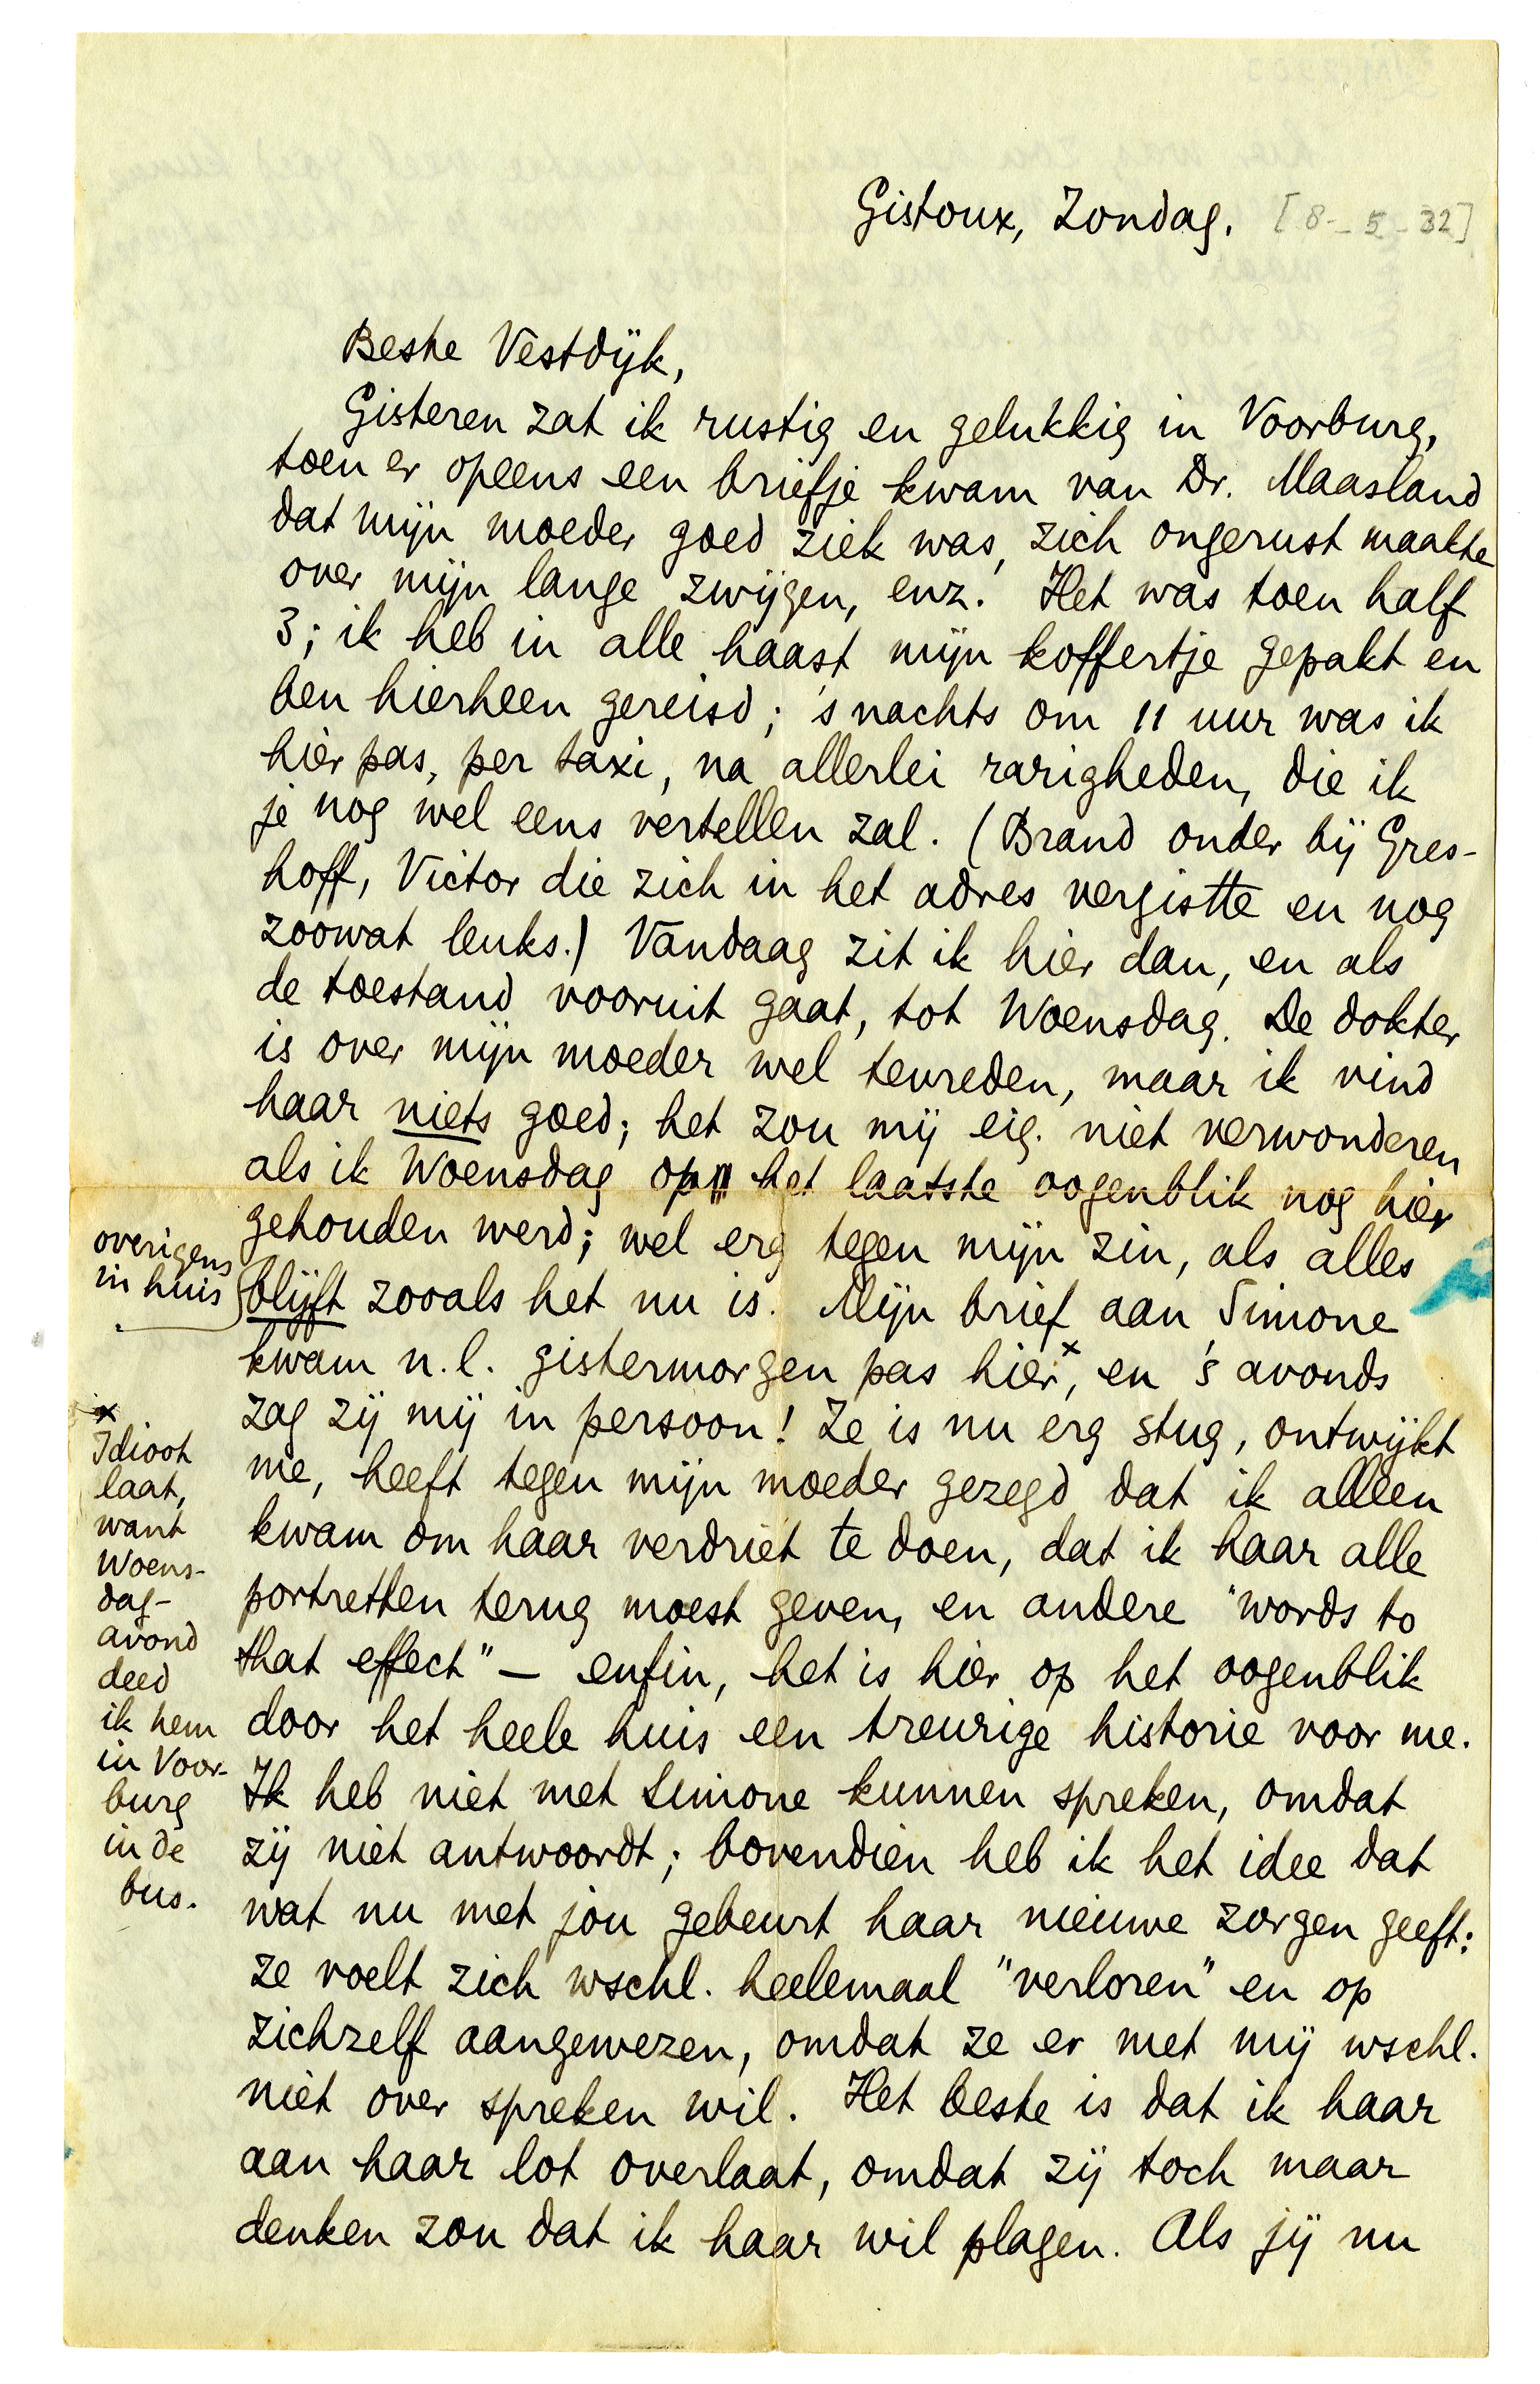 Gistoux, Zondag. [8-5-32]
Beste Vestdijk,
Gisteren zat ik rustig en gelukkig in Voorburg,
toen er opeens een briefje kwam van Dr. Maasland
dat mijn moeder goed ziek was, zich ongerust maakte
over mijn lange zwijgen, enz. Het was toen half
3; ik heb in alle haast mijn koffertje gepakt en
ben hierheen gereisd; 's nachts om 11 uur was ik
hier pas, per taxi, na allerlei rarigheden, die ik
je nog wel eens vertellen zal. (Brand onder bij Gres-
hoff, Victor die zich in het adres vergistte en nog
zoowat leuks.) Vandaag zit ik hier dan, en als
de toestand vooruit gaat, tot Woensdag. De dokter
is over mijn moeder wel tevreden, maar ik vind
haar niets goed; het zou mij eig. niet verwonderen
als ik Woensdag op het laatste oogenblik nog hier
gehouden werd; wel erg tegen mijn zin, als alles
overigens
in huis
blijft zooals het nu is. Mijn brief aan Simone
kwam n.l. gistermorgen pas hier x, en 's avonds
zag zij mij in persoon! Ze is nu erg stug, ontwijkt
me, heeft tegen mijn moeder gezegd dat ik alleen
kwam om haar verdriet te doen, dat ik haar alle
portretten terug moest geven, en andere "words to
that effect" — enfin, het is hier op het oogenblik
door het heele huis een treurige historie voor me.
Ik heb niet met Simone kunnen spreken, omdat
zij niet antwoordt; bovendien heb ik het idee dat
wat nu met jou gebeurt haar nieuwe zorgen geeft:
ze voelt zich wschl. heelemaal "verloren" en op
zichzelf aangewezen, omdat ze er met mij wschl.
niet over spreken wil. Het beste is dat ik haar
aan haar lot overlaat, omdat zij toch maar
denken zou dat ik haar wil plagen. Als jij nu
x
Idioot
laat,
want
Woens-
dag-
avond
deed
ik hem
in Voor-
burg
in de
bus.